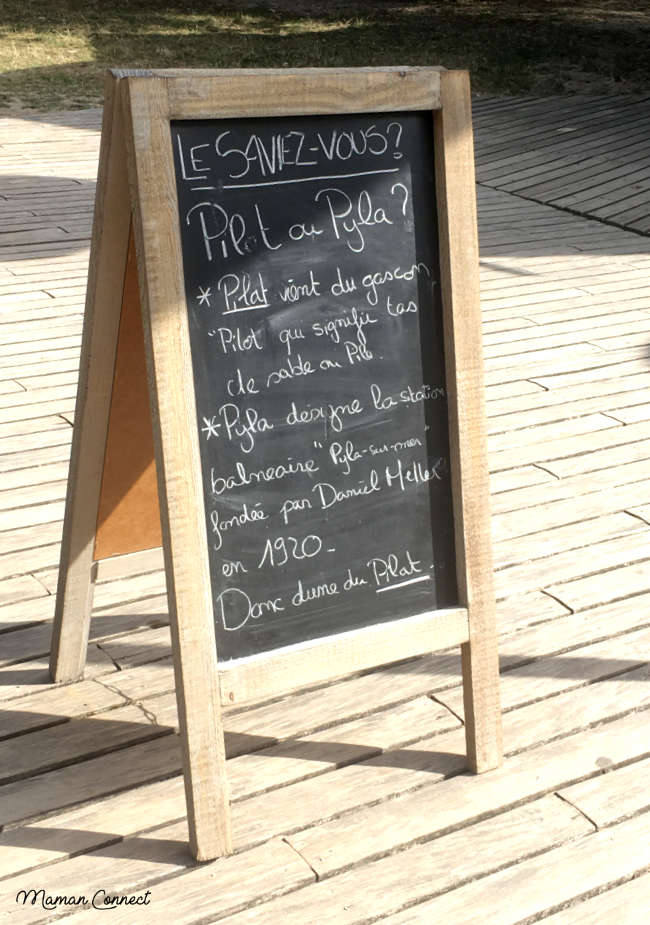 LE SAVIEZ-VOUS?
Pilat ou Pyla?
* Pilat vient du gascon
"Pilot" qui signifie tas
de sable ou Pile.
* Pyla désigne la station
balneaire "Pyla-sur-mer"
fondée par Daniel Meller
en 1920.
Donc dune du Pilat.
Maman Connect